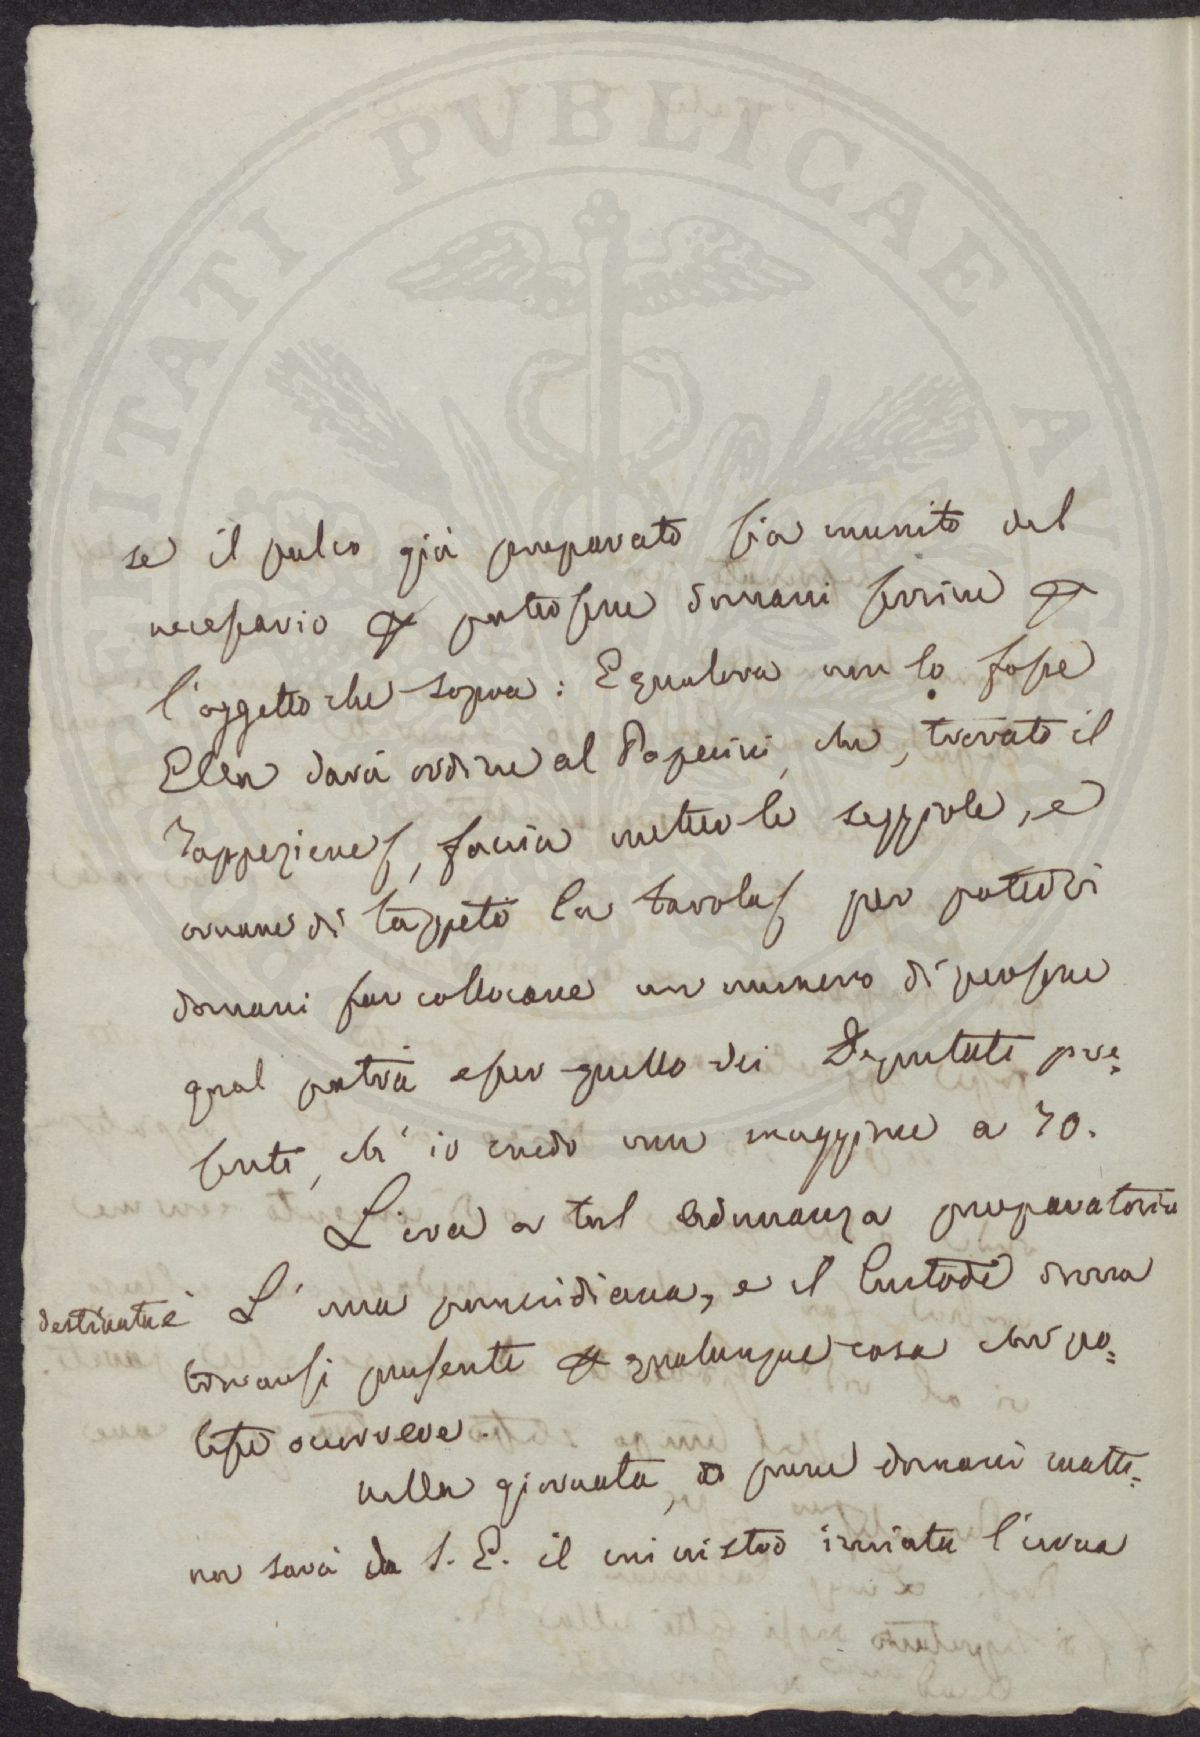 PERITATI PVBLICAE AVG
se il palco già preparato sia munito del
necessario potersene domani servire
l'oggetto che sopra: Equalora non lo fosse
Ella darà ordine al Paperini, che, trovato il
Tappeziere, faccia mettere le seggiole, e
ornare di tappeto la tavola, per potervi
domani far collocare un numero di persone
qual potrà esser quello dei Deputati pre=
senti, ch'io credo non maggiore a 70.
L'ora a tal adunanza preparatoria
destinata è L'una pomeridiana, e il Custode dovrà
trovarsi presente qualunque cosa che po=
tesse ocorrere.
Nella giornata, o pure domani matti=
na sarà da S. E. il ministro inviata l'urna